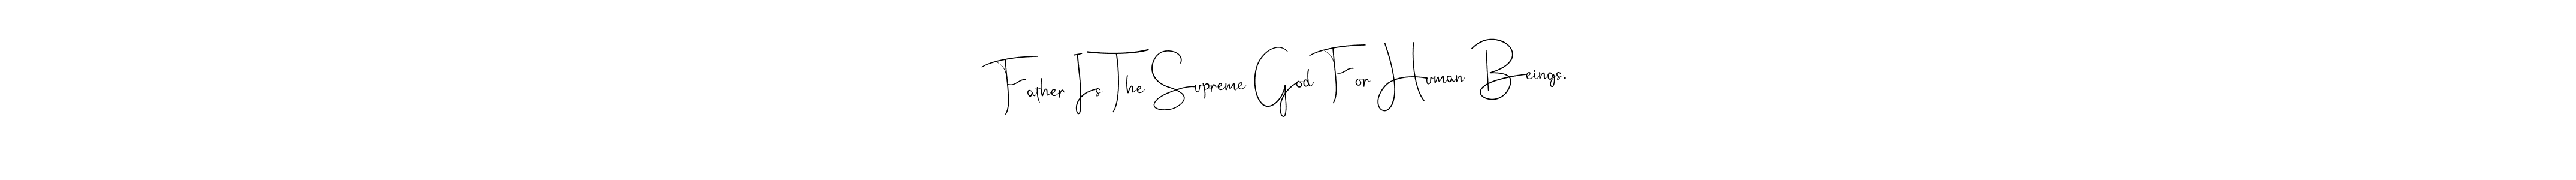 Father Is The Supreme God For Human Beings.